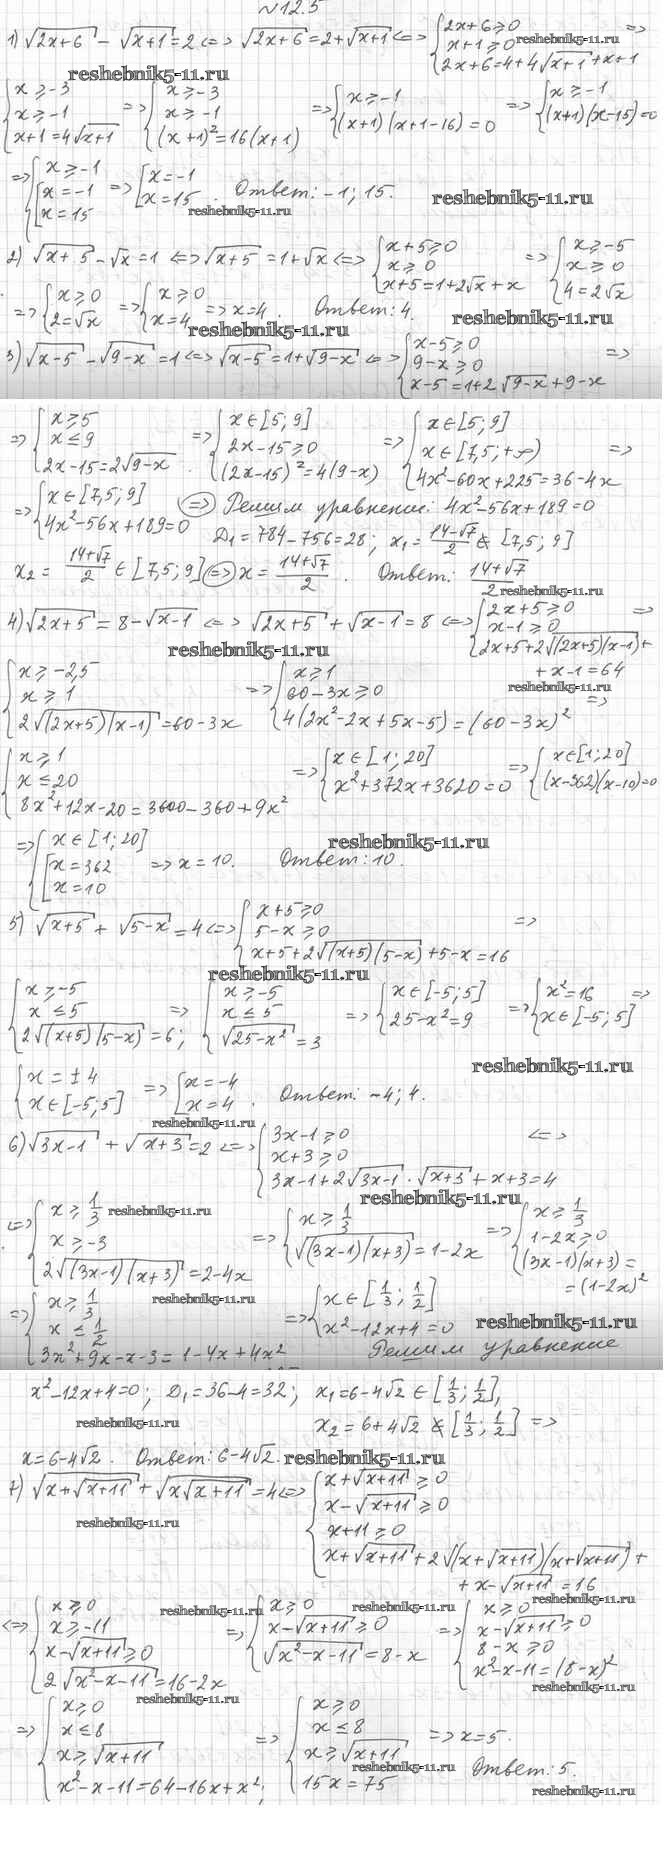 N12.5
1) √(2x+6) - √(x+1) = 2 <=> √(2x+6) = 2+√(x+1) <=> { 2x+6⩾0 ; x+1⩾0 ; 2x+6=4+4√(x+1)+x+1 =>
reshebnik5-11.ru
reshebnik5-11.ru
{ x⩾-3 ; x⩾-1 ; x+1=4√(x+1) => { x⩾-3 ; x⩾-1 ; (x+1)²=16(x+1) => { x⩾-1 ; (x+1)(x+1-16)=0 => { x⩾-1 ; (x+1)(x-15)=0
=> { x⩾-1 ; [ x=-1 ; x=15 => [ x=-1 ; x=15 . Ответ: -1; 15.
reshebnik5-11.ru
reshebnik5-11.ru
2) √(x+5) - √x = 1 <=> √(x+5) = 1+√x <=> { x+5⩾0 ; x⩾0 ; x+5=1+2√x+x => { x⩾-5 ; x⩾0 ; 4=2√x
=> { x⩾0 ; 2=√x => { x⩾0 ; x=4 => x=4. Ответ: 4.
reshebnik5-11.ru
reshebnik5-11.ru
3) √(x-5) - √(9-x) = 1 <=> √(x-5) = 1+√(9-x) <=> { x-5⩾0 ; 9-x⩾0 ; x-5=1+2√(9-x)+9-x =>
=> { x⩾5 ; x≤9 ; 2x-15=2√(9-x) . => { x∈[5;9] ; 2x-15⩾0 ; (2x-15)²=4(9-x) => { x∈[5;9] ; x∈[7,5;+∞) ; 4x²-60x+225=36-4x =>
=> { x∈[7,5;9] ; 4x²-56x+189=0 => Решим уравнение: 4x²-56x+189=0
D₁=784-756=28; x₁=(14-√7)/2 ∉ [7,5;9]
x₂=(14+√7)/2 ∈ [7,5;9] => x=(14+√7)/2 . Ответ: (14+√7)/2
reshebnik5-11.ru
4) √(2x+5) = 8-√(x-1) <=> √(2x+5) + √(x-1) = 8 <=> { 2x+5⩾0 ; x-1⩾0 ; 2x+5+2√((2x+5)(x-1)) + =>
+x-1=64
reshebnik5-11.ru
reshebnik5-11.ru
{ x⩾-2,5 ; x⩾1 ; 2√((2x+5)(x-1))=60-3x => { x⩾1 ; 60-3x⩾0 ; 4(2x²-2x+5x-5)=(60-3x)² =>
{ x⩾1 ; x≤20 ; 8x²+12x-20=3600-360+9x² => { x∈[1;20] ; x²+372x+3620=0 => { x∈[1;20] ; (x-362)(x-10)=0
=> { x∈[1;20] ; [ x=362 ; x=10 => x=10. Ответ: 10.
reshebnik5-11.ru
5) √(x+5) + √(5-x) = 4 <=> { x+5⩾0 ; 5-x⩾0 ; x+5+2√((x+5)(5-x))+5-x=16 =>
reshebnik5-11.ru
{ x⩾-5 ; x≤5 ; 2√((x+5)(5-x))=6; => { x⩾-5 ; x≤5 ; √(25-x²)=3 => { x∈[-5;5] ; 25-x²=9 => { x²=16 ; x∈[-5;5] =>
reshebnik5-11.ru
{ x=±4 ; x∈[-5;5] => [ x=-4 ; x=4 . Ответ: -4; 4.
reshebnik5-11.ru
6) √(3x-1) + √(x+3) = 2 <=> { 3x-1⩾0 ; x+3⩾0 ; 3x-1+2√(3x-1)·√(x+3)+x+3=4 <=>
reshebnik5-11.ru
<=> { x⩾1/3 ; x⩾-3 ; 2√((3x-1)(x+3))=2-4x => { x⩾1/3 ; √((3x-1)(x+3))=1-2x => { x⩾1/3 ; 1-2x⩾0 ; (3x-1)(x+3)=
=(1-2x)²
reshebnik5-11.ru
reshebnik5-11.ru
=> { x⩾1/3 ; x≤1/2 ; 3x²+9x-x-3=1-4x+4x² => { x∈[1/3;1/2] ; x²-12x+4=0
reshebnik5-11.ru
Решим уравнение
x²-12x+4=0; D₁=36-4=32; x₁=6-4√2 ∈ [1/3;1/2],
reshebnik5-11.ru
x₂=6+4√2 ∉ [1/3;1/2] =>
x=6-4√2. Ответ: 6-4√2.
reshebnik5-11.ru
7) √(x+√(x+11)) + √(x√(x+11)) = 4 <=> { x+√(x+11)⩾0 ; x-√(x+11)⩾0 ; x+11⩾0 ; x+√(x+11)+2√((x+√(x+11))(x+√(x+11))) +
+x-√(x+11)=16
reshebnik5-11.ru
reshebnik5-11.ru
<=> { x⩾0 ; x⩾-11 ; x-√(x+11)⩾0 ; 2√(x²-x-11)=16-2x => { x⩾0 ; x-√(x+11)⩾0 ; √(x²-x-11)=8-x => { x⩾0 ; x-√(x+11)⩾0 ; 8-x⩾0 ; x²-x-11=(8-x)²
reshebnik5-11.ru
reshebnik5-11.ru
reshebnik5-11.ru
reshebnik5-11.ru
=> { x⩾0 ; x≤8 ; x⩾√(x+11) ; x²-x-11=64-16x+x²; => { x⩾0 ; x≤8 ; x⩾√(x+11) ; 15x=75 => x=5.
reshebnik5-11.ru
Ответ: 5.
reshebnik5-11.ru